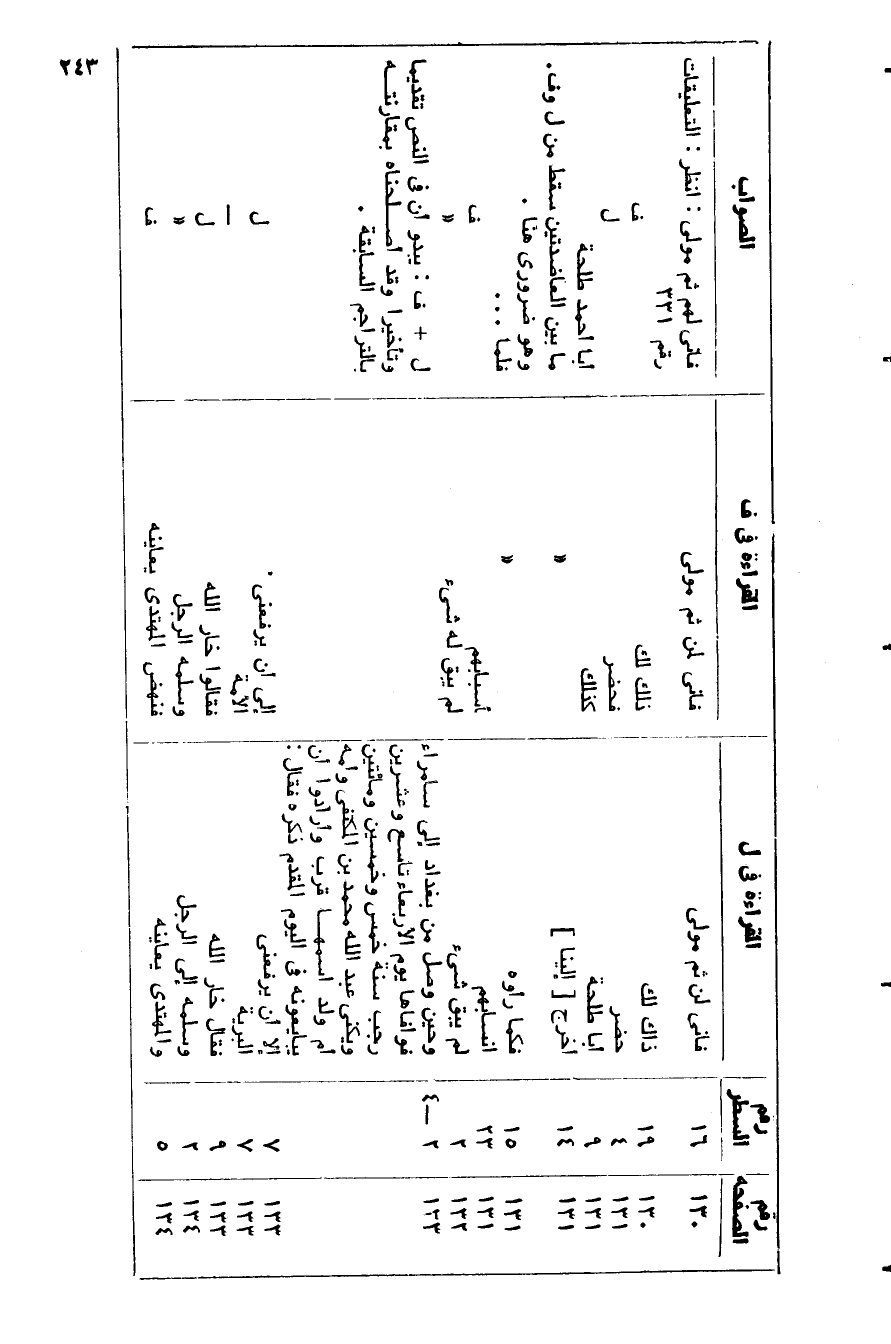 ٢٤٣
رقم الصفحه | رقم السطر | القراءة فى ل | القراءة فى ف | الصواب
١٣٠ | ١٦ | فانى لن ثم مولى | فانى لمن ثم مولى | فانى لهم ثم مولى : انظر : التعليقات
رقم ٣٣١
١٣٠ | ١٩ | ذاك لك | ذلك لك | ف
١٣١ | ٤ | حضر | فحضر | ل
١٣١ | ٩ | أبا طلحة | كذلك | أبا أحمد طلحة
١٣١ | ١٤ | أخرج [ إلينا ] | » | ما بين العاضدتين سقط من ل وف.
وهو ضرورى هنا .
١٣١ | ١٥ | فكما رأوه | » | فلما ...
١٣١ | ٢٣ | انسابهم | أسبابهم | ف
١٣٢ | ٢ | لم يبق شىء | لم يبق له شىء | »
١٢٣ | ٢ — ٤ | وحين وصل من بغداد إلى سامراء | ل + ف : يبدو أن فى النص تقديما
فوافاها يوم الأربعاء تاسع وعشرين | وتأخيرا وقد أصلحناه بمقارنته
رجب سنة خمس وخمسين ومائتين | بالتراجم السابقة .
ويكنى عبد الله محمد بن المكتفى وأمه
أم ولد اسمها قرب وأرادوا أن
يبايعونه فى اليوم المقدم ذكره فقال :
١٣٣ | ٧ | إلا أن يرفعنى | إلى أن يرفعنى . | ل
١٣٣ | ٧ | البرية | الأمة | ا
١٣٣ | ٩ | فقال خار الله | فقالوا خار الله | ل
١٣٤ | ٢ | وسلمه إلى الرجل | وسلمه الرجل | »
١٣٤ | ٥ | والمهتدى يعاينه | فنهض المهتدى يعاينه | ف